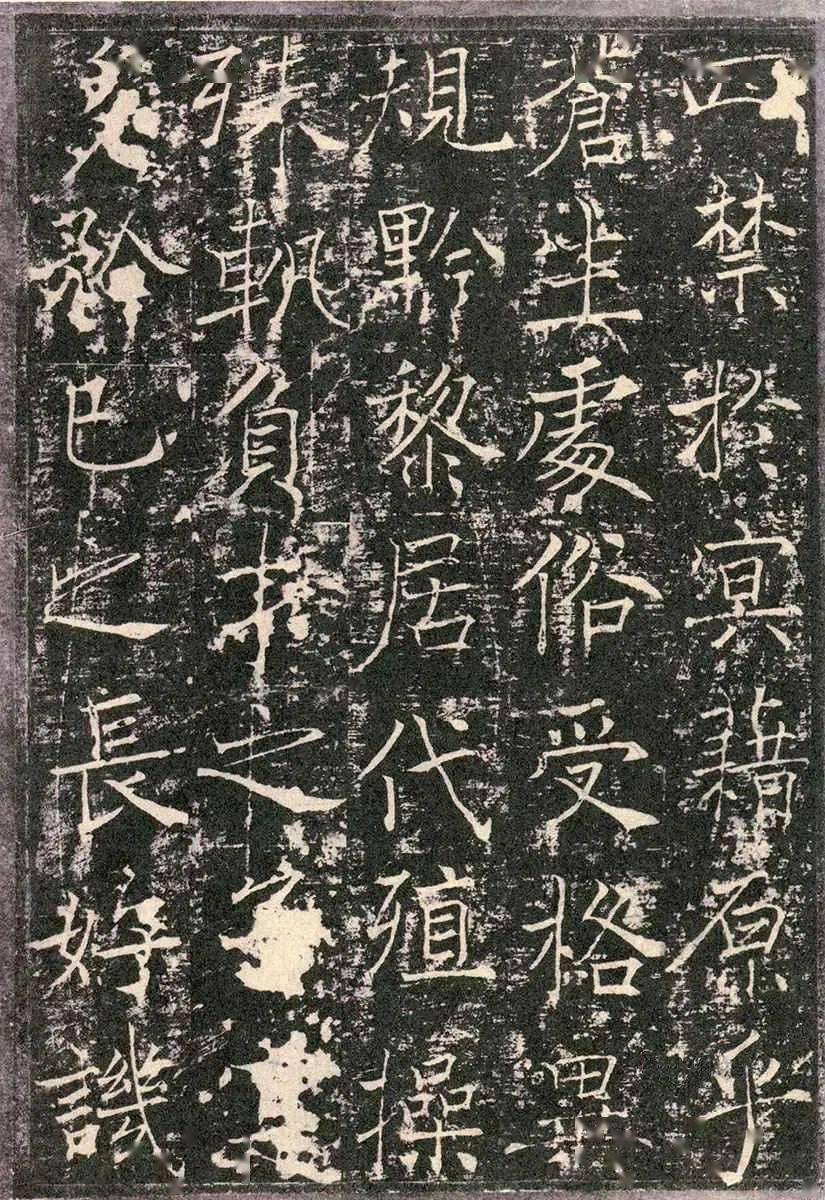 禁於冥藉原乎
蒼生處俗受格異
規黔黎居代殖操
殊軌負之寔
矜已之長好譏